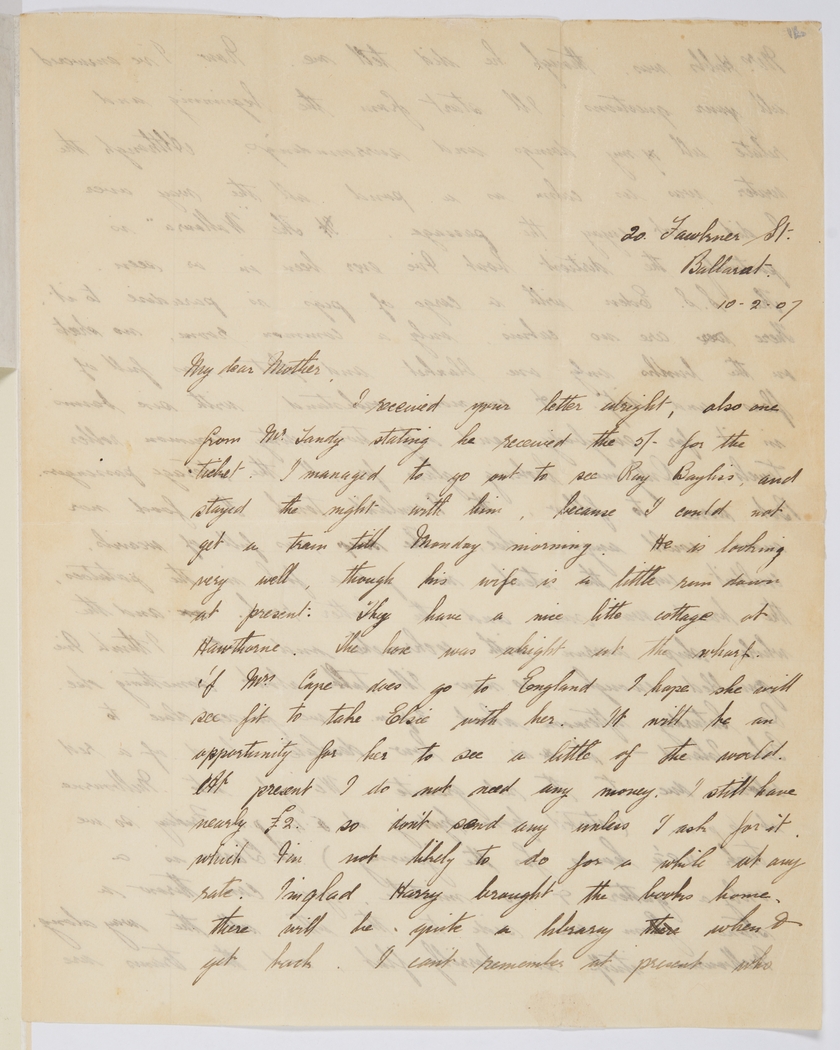 16
20. Fawkner St.
Ballarat.
10-2-07
My dear Mother,
I received your letter alright, also one
from Mr. Tandy stating he received the 5/- for the
ticket. I managed to go out to see Roy Bayliss and
stayed the night with him, because I could not
get a train till Monday morning. He is looking
very well, though his wife is a little run down
at present. They have a nice litte cottage at
Hawthorne. The box was alright at the wharf.
if Mrs Cape does go to England I hope she will
see fit to take Elsie with her. It will be an
opportunity for her to see a little of the world.
At present I do not need any money. I still have
nearly £2. so don't send any unless I ask for it.
which I'm not likely to do for a while at any
rate. I'm glad Harry brought the books home.
there will be quite a library there when I
get back. I can't remember at present who